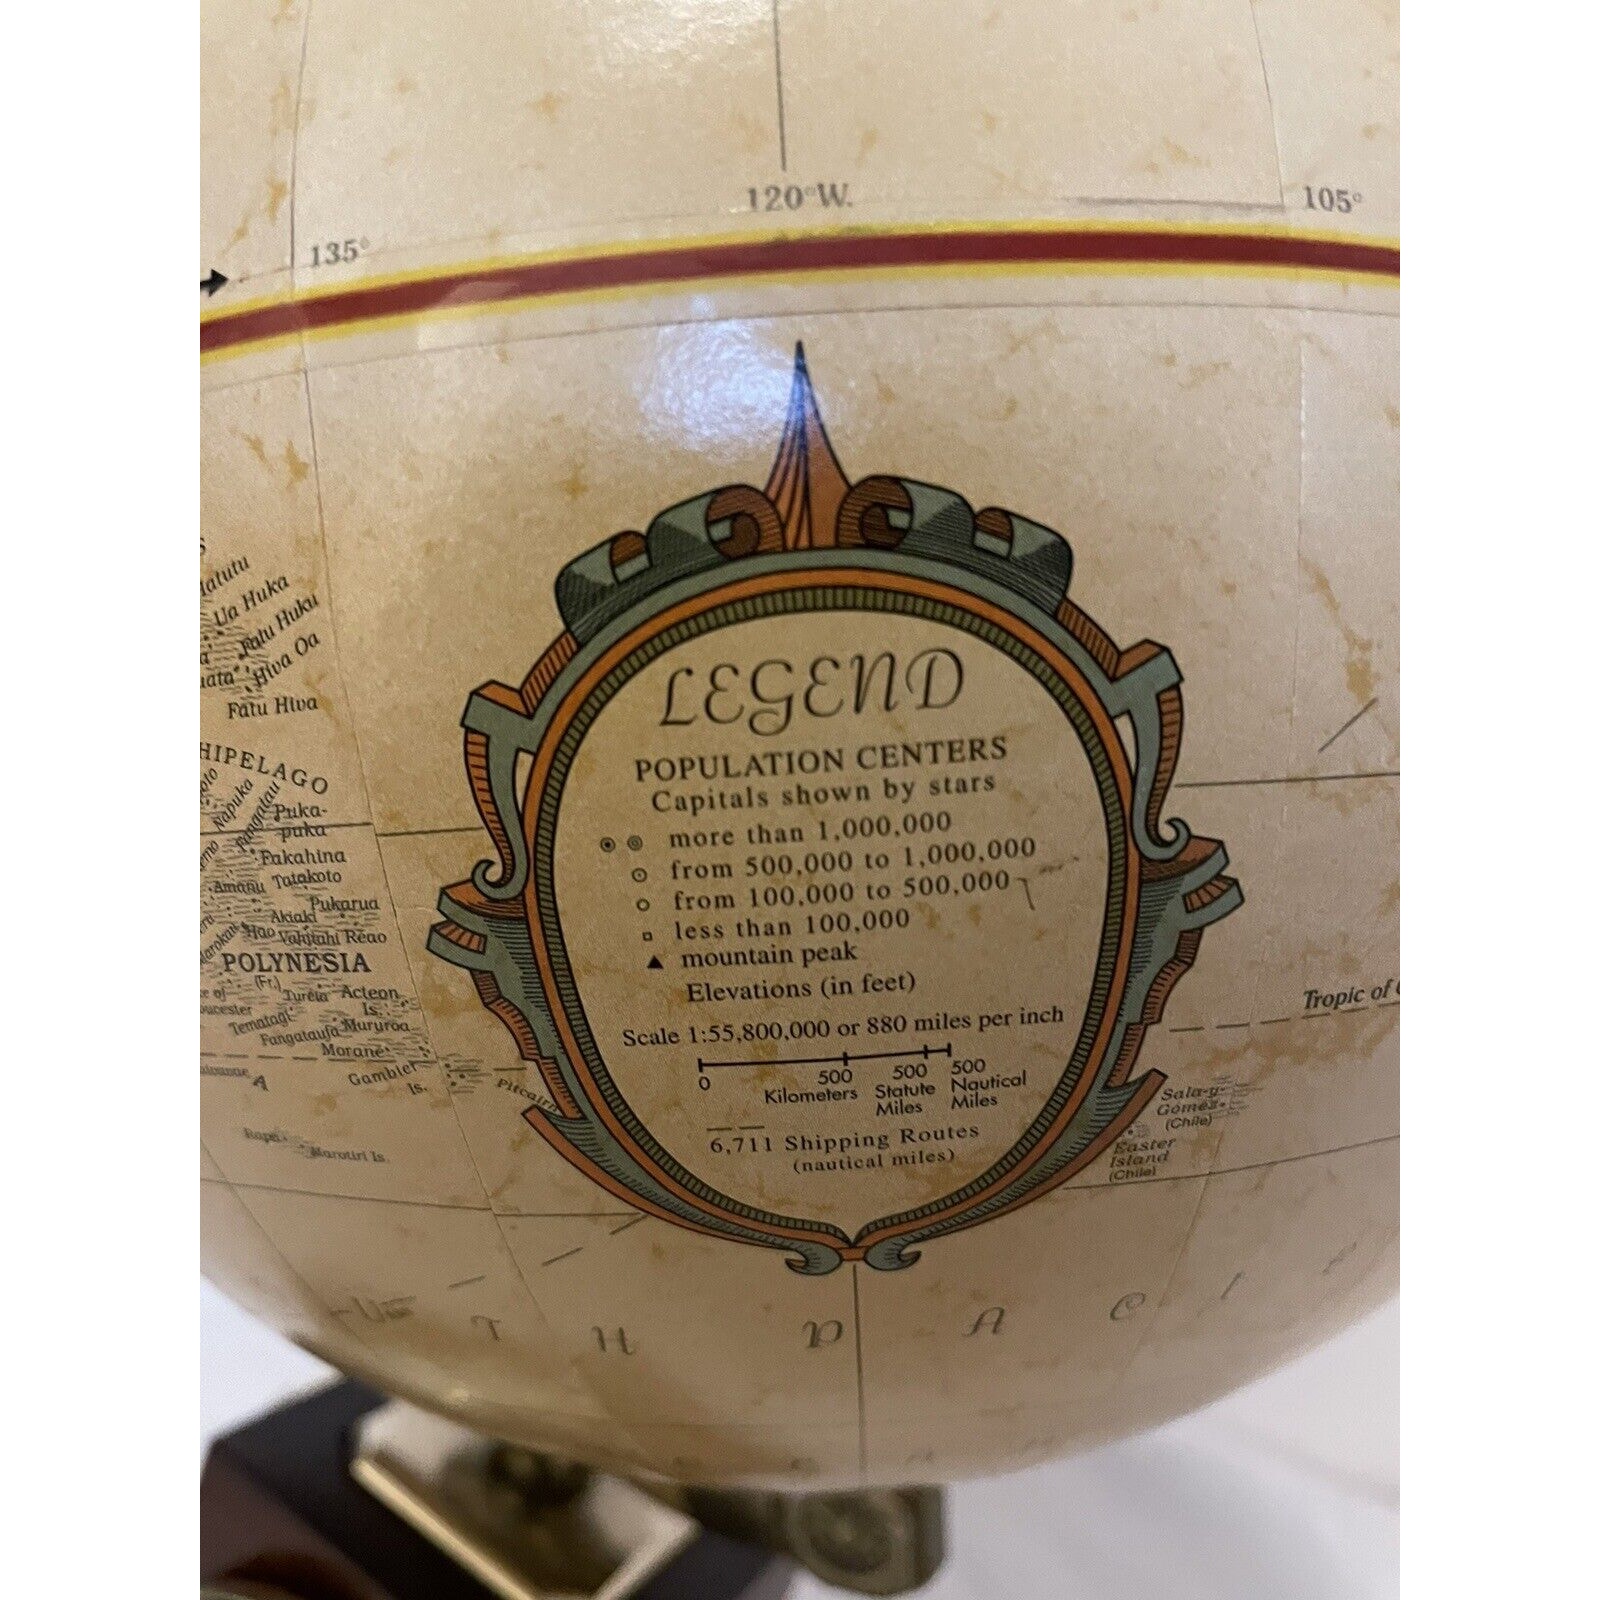 120°W.
105°
135°
Ua Huka
Fatu Huku
Hiva Oa
Fatu Hiva
LEGEND
POPULATION CENTERS
Capitals shown by stars
more than 1,000,000
from 500,000 to 1,000,000
from 100,000 to 500,000
less than 100,000
mountain peak
Elevations (in feet)
Scale 1:55,800,000 or 880 miles per inch
0 500 500 500
Kilometers Statute Nautical
Miles Miles
6,711 Shipping Routes
(nautical miles)
HIPELAGO
Napuka
Puka-
puka
Fakahina
Amanu Tatakoto
Pukarua
Akiaki
Hao Vahitahi Reao
POLYNESIA
(Fr.)
Tureia Acteon
Is.
Tematagi
Fangataufa Mururoa
Morane
Gambier
Is.
Pitcairn
Rapa
Marotiri Is.
Tropic of
Sala-y-
Gomez
(Chile)
Easter
Island
(Chile)
T H P A C I